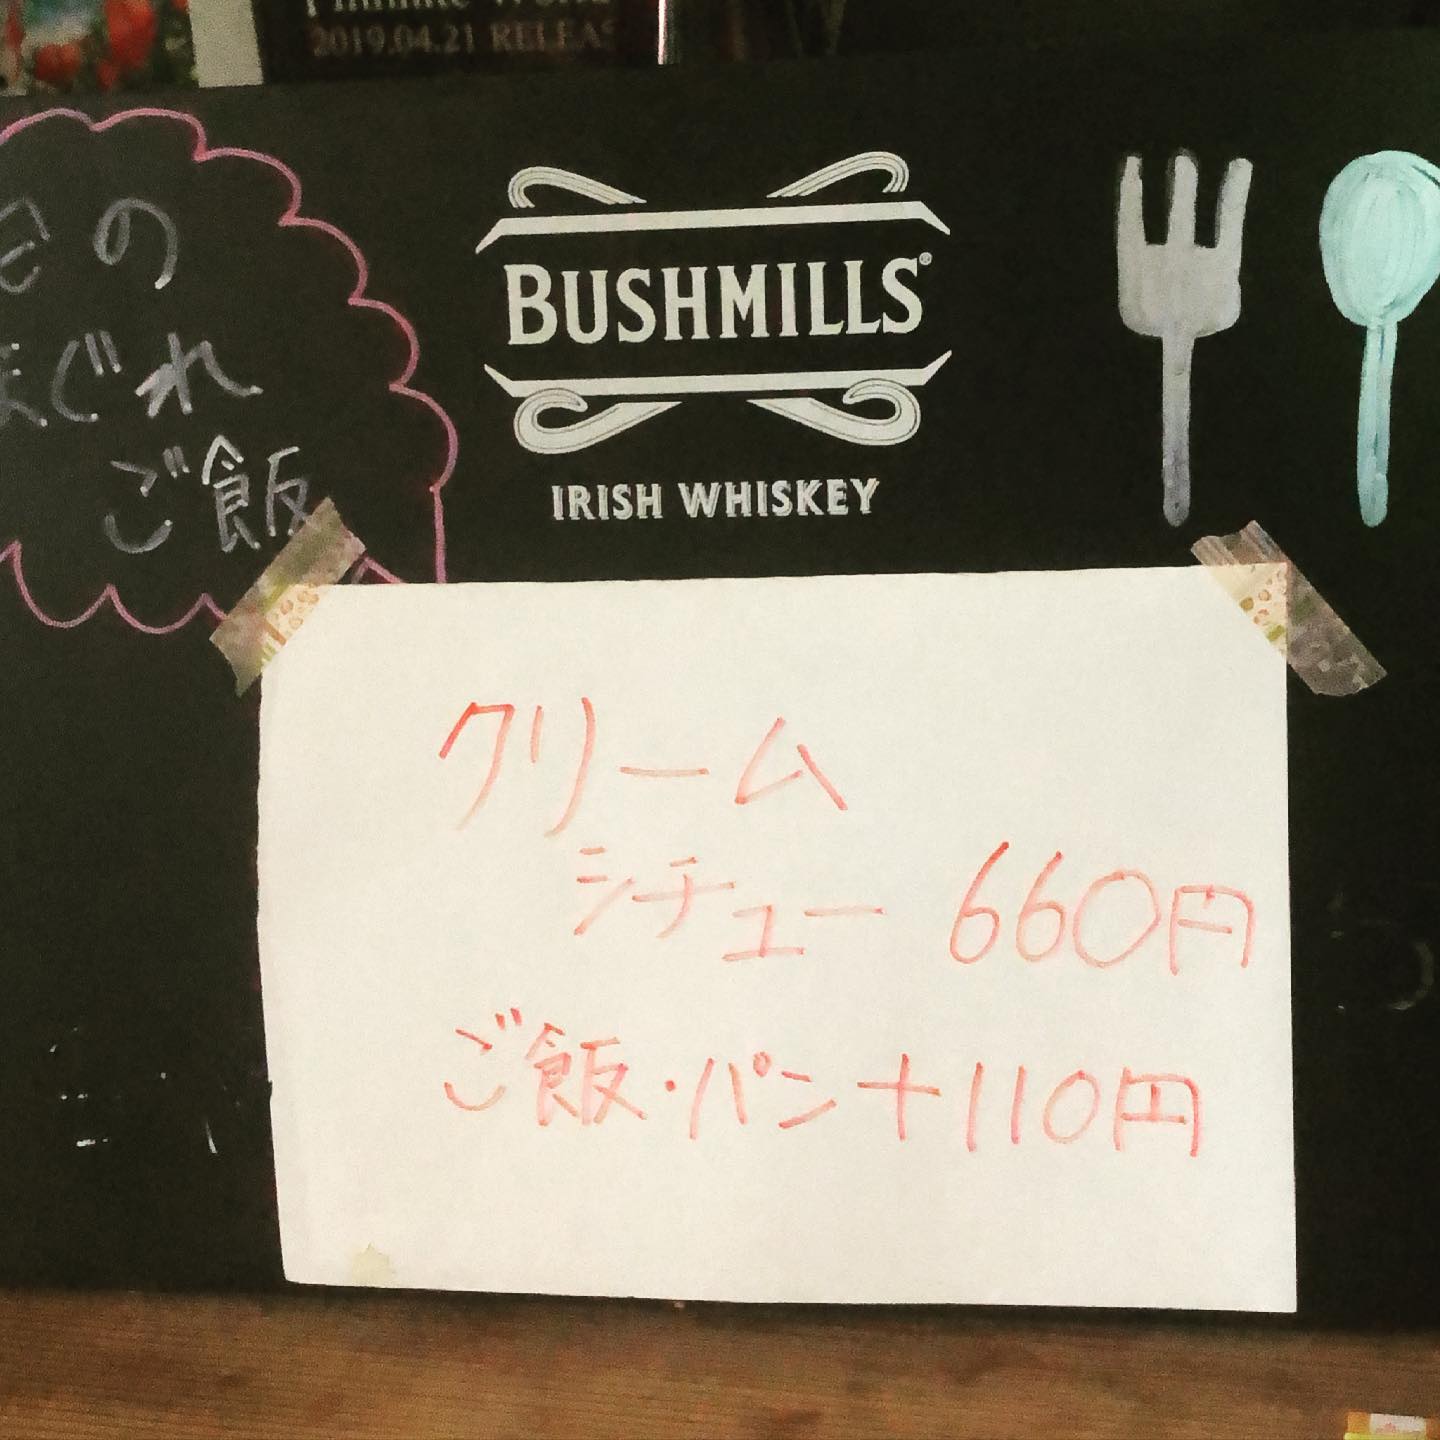 2019.04.21 RELEAS
の
まぐれ
ご飯
BUSHMILLS®
IRISH WHISKEY
クリーム
シチュー 660円
ご飯・パン+110円